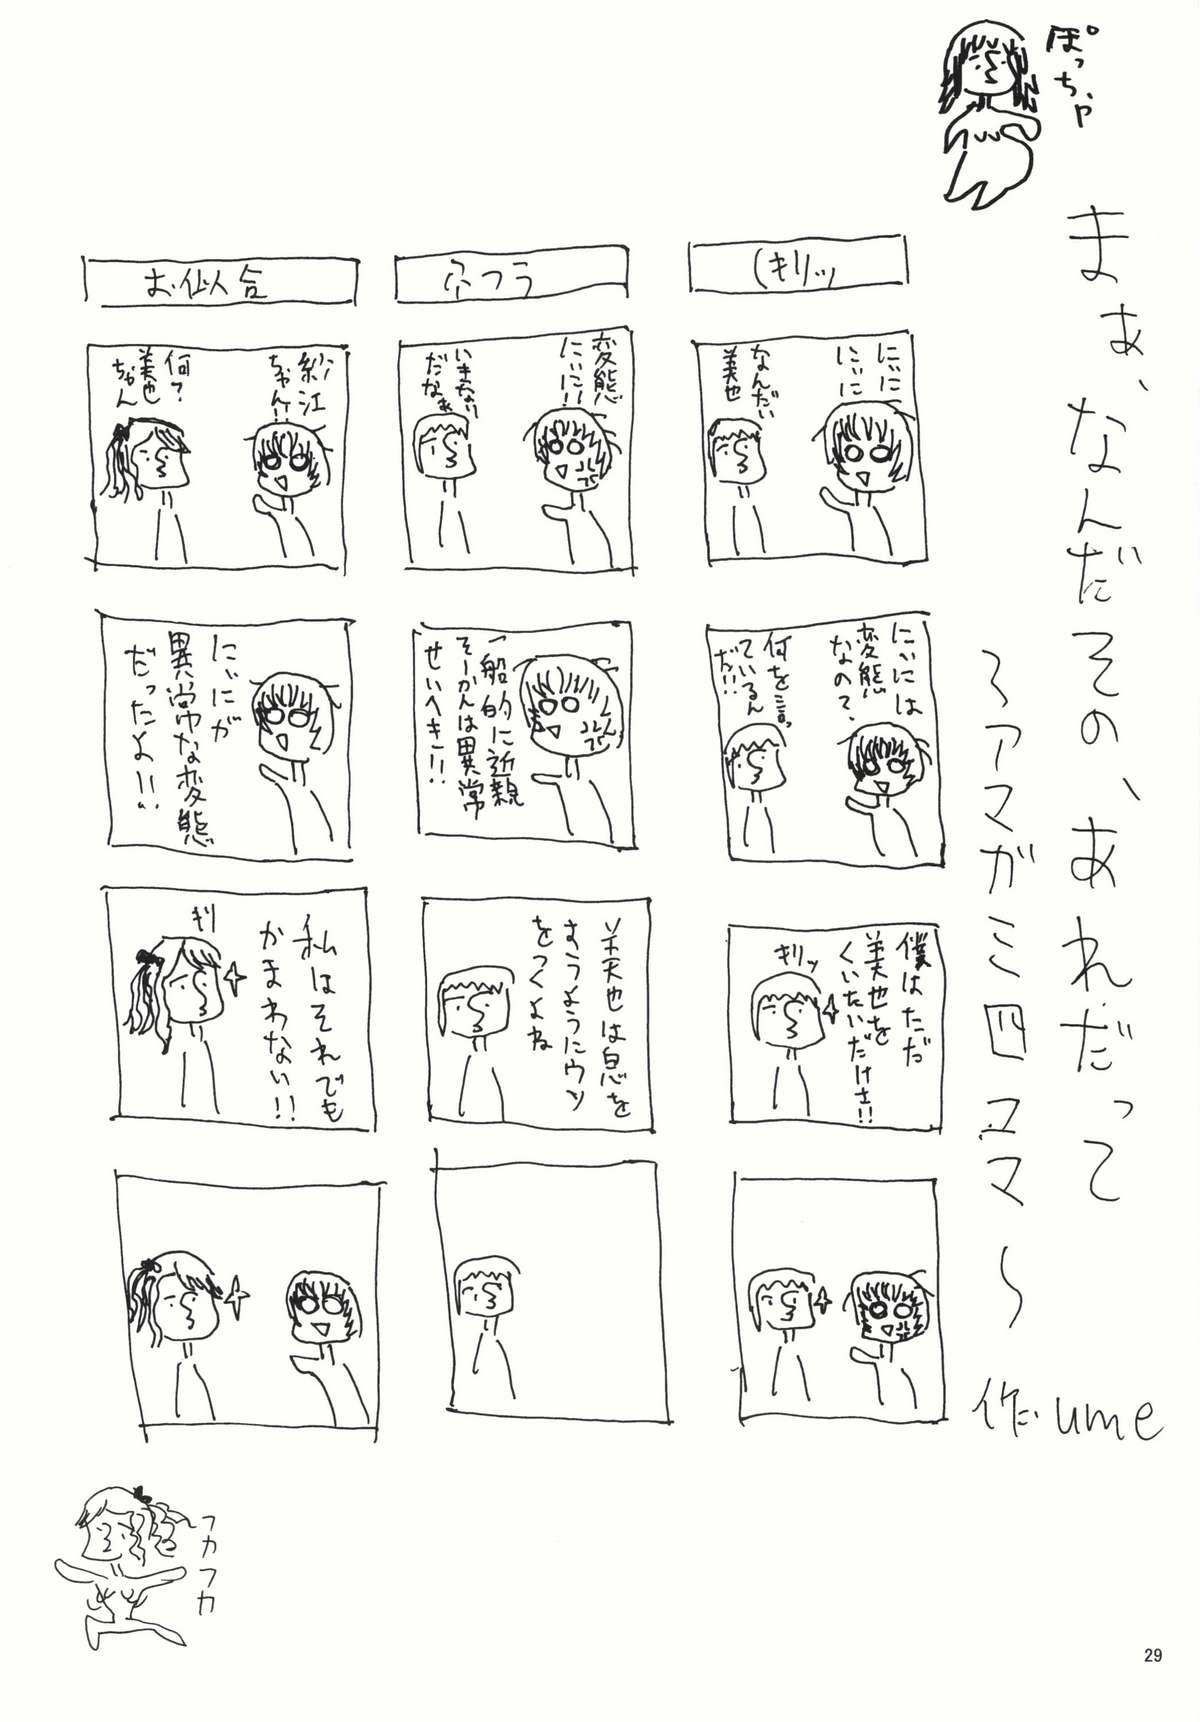 ぽっちゃ
まぁ、なんだその、あれだって
～アマガミ四コマ～
作 ume
(キリッ
にぃに
にぃに
なんだい
美也
にぃには
変態
なので、
何を言っ
ているん
だ!!
僕はただ
美也を
くいたいだけさ!!
キリッ
変態
にぃに!!
いきなり
だなぁ
一般的に近親
そーかんは異常
せいへき!!
美也は息を
すうようにウソ
をつくよね
お似合
紗江
ちゃん!!
何?
美也
ちゃん
にぃにが
異常な変態
だったよ!!
私はそれでも
かまわない!!
キリ
フカフカ
29